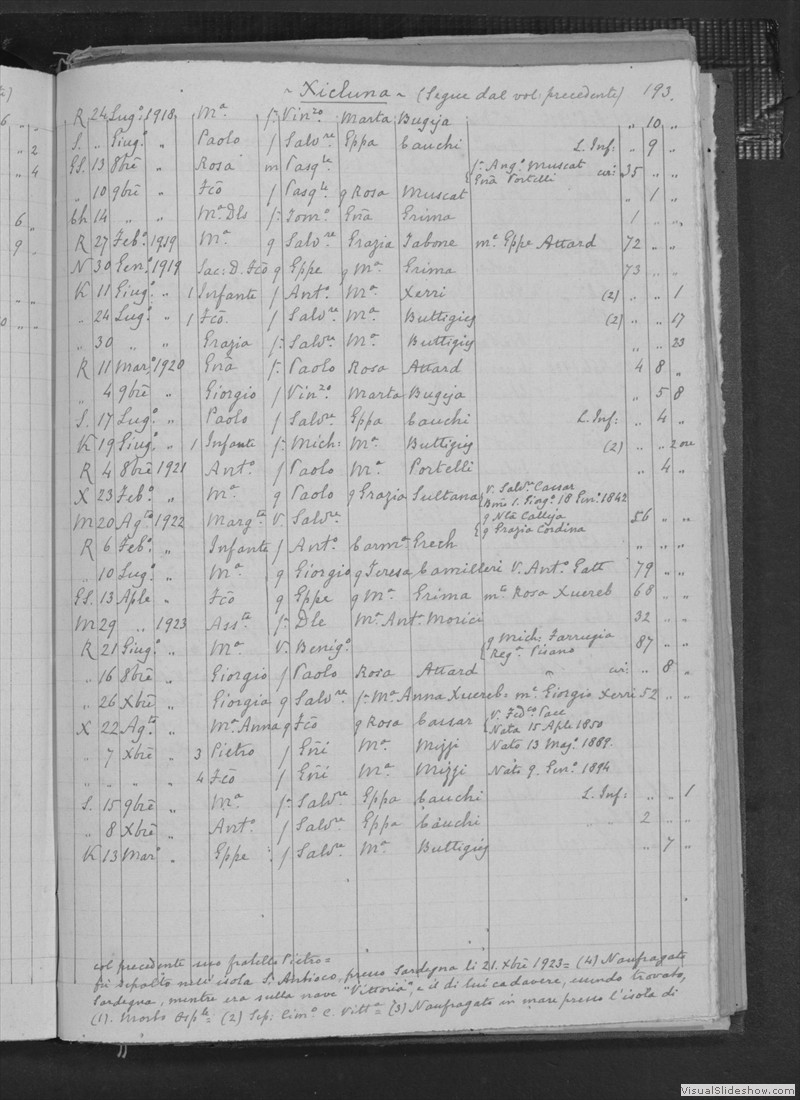 ~ Xicluna ~ (Segue dal vol: precedente) 193.
R 24 Lug.º 1918 Mª f. Vin.zo Marta Bugeja „ 10 „
S. „ Giug.º „ Paolo f Salv.re Eppa Cauchi L. Inf: „ 9 „
GS. 13 8brē „ Rosa m Pasq.le { f. Ang.º Muscat Gnā Portelli cui: 35 „ „
„ 10 9brē „ Fcō f Pasq.le q Rosa Muscat „ 1 „
Ch 14 „ „ Mª Dls f. Tom.º Gnā Grima 1 „ „
R 27 Feb.º 1919 Mª q Salv.re Grazia Tabone m.e Eppe Attard 72 „ „
N 30 Gen.º 1919 Sac: D. Fcō q Eppe q Mª Grima 73 „ „
K 11 Giug.º „ 1 Infante f Ant.º Mª Xerri (2) „ „ 1
„ 24 Lug.º „ 1 Fcō. f Salv.re Mª Buttigieg (2) „ „ 17
„ 30 „ „ Grazia f. Salv.re Mª Buttigieg „ „ 23
R 11 Mar.º 1920 Gnā f. Paolo Rosa Attard 4 8 „
„ 4 9brē „ Giorgio f Vin.zo Marta Bugeja „ 5 8
S. 17 Lug.º „ Paolo f Salv.re Eppa Cauchi L. Inf: „ 4 „
K 19 Giug.º „ 1 Infante f. Mich: Mª Buttigieg (2) „ „ 2 ore
R 4 8brē 1921 Ant.º f Paolo Mª Portelli „ 4 „
X 23 Feb.º „ Mª q Paolo q Grazia Sultana { V. Salv.re Cassar 18 Gen.º 1842
M 20 Ag.to 1922 Marg.ta V. Salv.re { q Nlā Calleja q Grazia Cordina 56 „ „
R 6 Feb.º „ Infante f Ant.º Carmª Grech „ „ „
„ 10 Lug.º „ Mª q Giorgio q Teresa Camilleri V. Ant.º Gatt 79 „ „
GS. 13 Aple „ Fcō q Eppe q Mª Grima m.to Rosa Xuereb 68 „ „
M 29 „ 1923 Ass.ta f. Dle Mª Antª Morici 32 „ „
R 21 Giug.º „ Mª V. Benig.º { q Mich: Farrugia Regª Pisano 87 „ „
„ 16 8brē „ Giorgio f Paolo Rosa Attard „ cui: „ 8 „
„ 26 Xbrē „ Giorgia q Salv.re f. Mª Anna Xuereb= m.e Giorgio Xerri 52 „ „
X 22 Ag.to „ Mª Anna q Fcō q Rosa Cassar { V. Fed.co Pace Nata 15 Aple 1850
„ 7 Xbrē „ 3 Pietro f Gnī Mª Mizzi Nato 13 Mag.º 1889.
„ „ „ „ 4 Fcō f Gnī Mª Mizzi Nato 9 Gen.º 1894
S. 15 9brē „ Mª f. Salv.re Eppa Cauchi L. Inf: „ „ 1
„ 8 Xbrē „ Ant.º f Salv.re Eppa Cauchi „ „ 2 „ „
K 13 Mar.º „ Eppe f Salv.re Mª Buttigieg „ 7 „
vol precedente suo fratello Pietro=
fù sepolto nell'isola S. Antioco, presso Sardegna li 21. Xbrē 1923= (4) Naufragato
Sardegna, mentre era sulla nave "Vittoria", e il di lui cadavere, essendo trovato,
(1). Morto Osp.le= (2) Sep: Cim.º C. Vittª= (3) Naufragato in mare presso l'isola di
VisualSlideshow.com